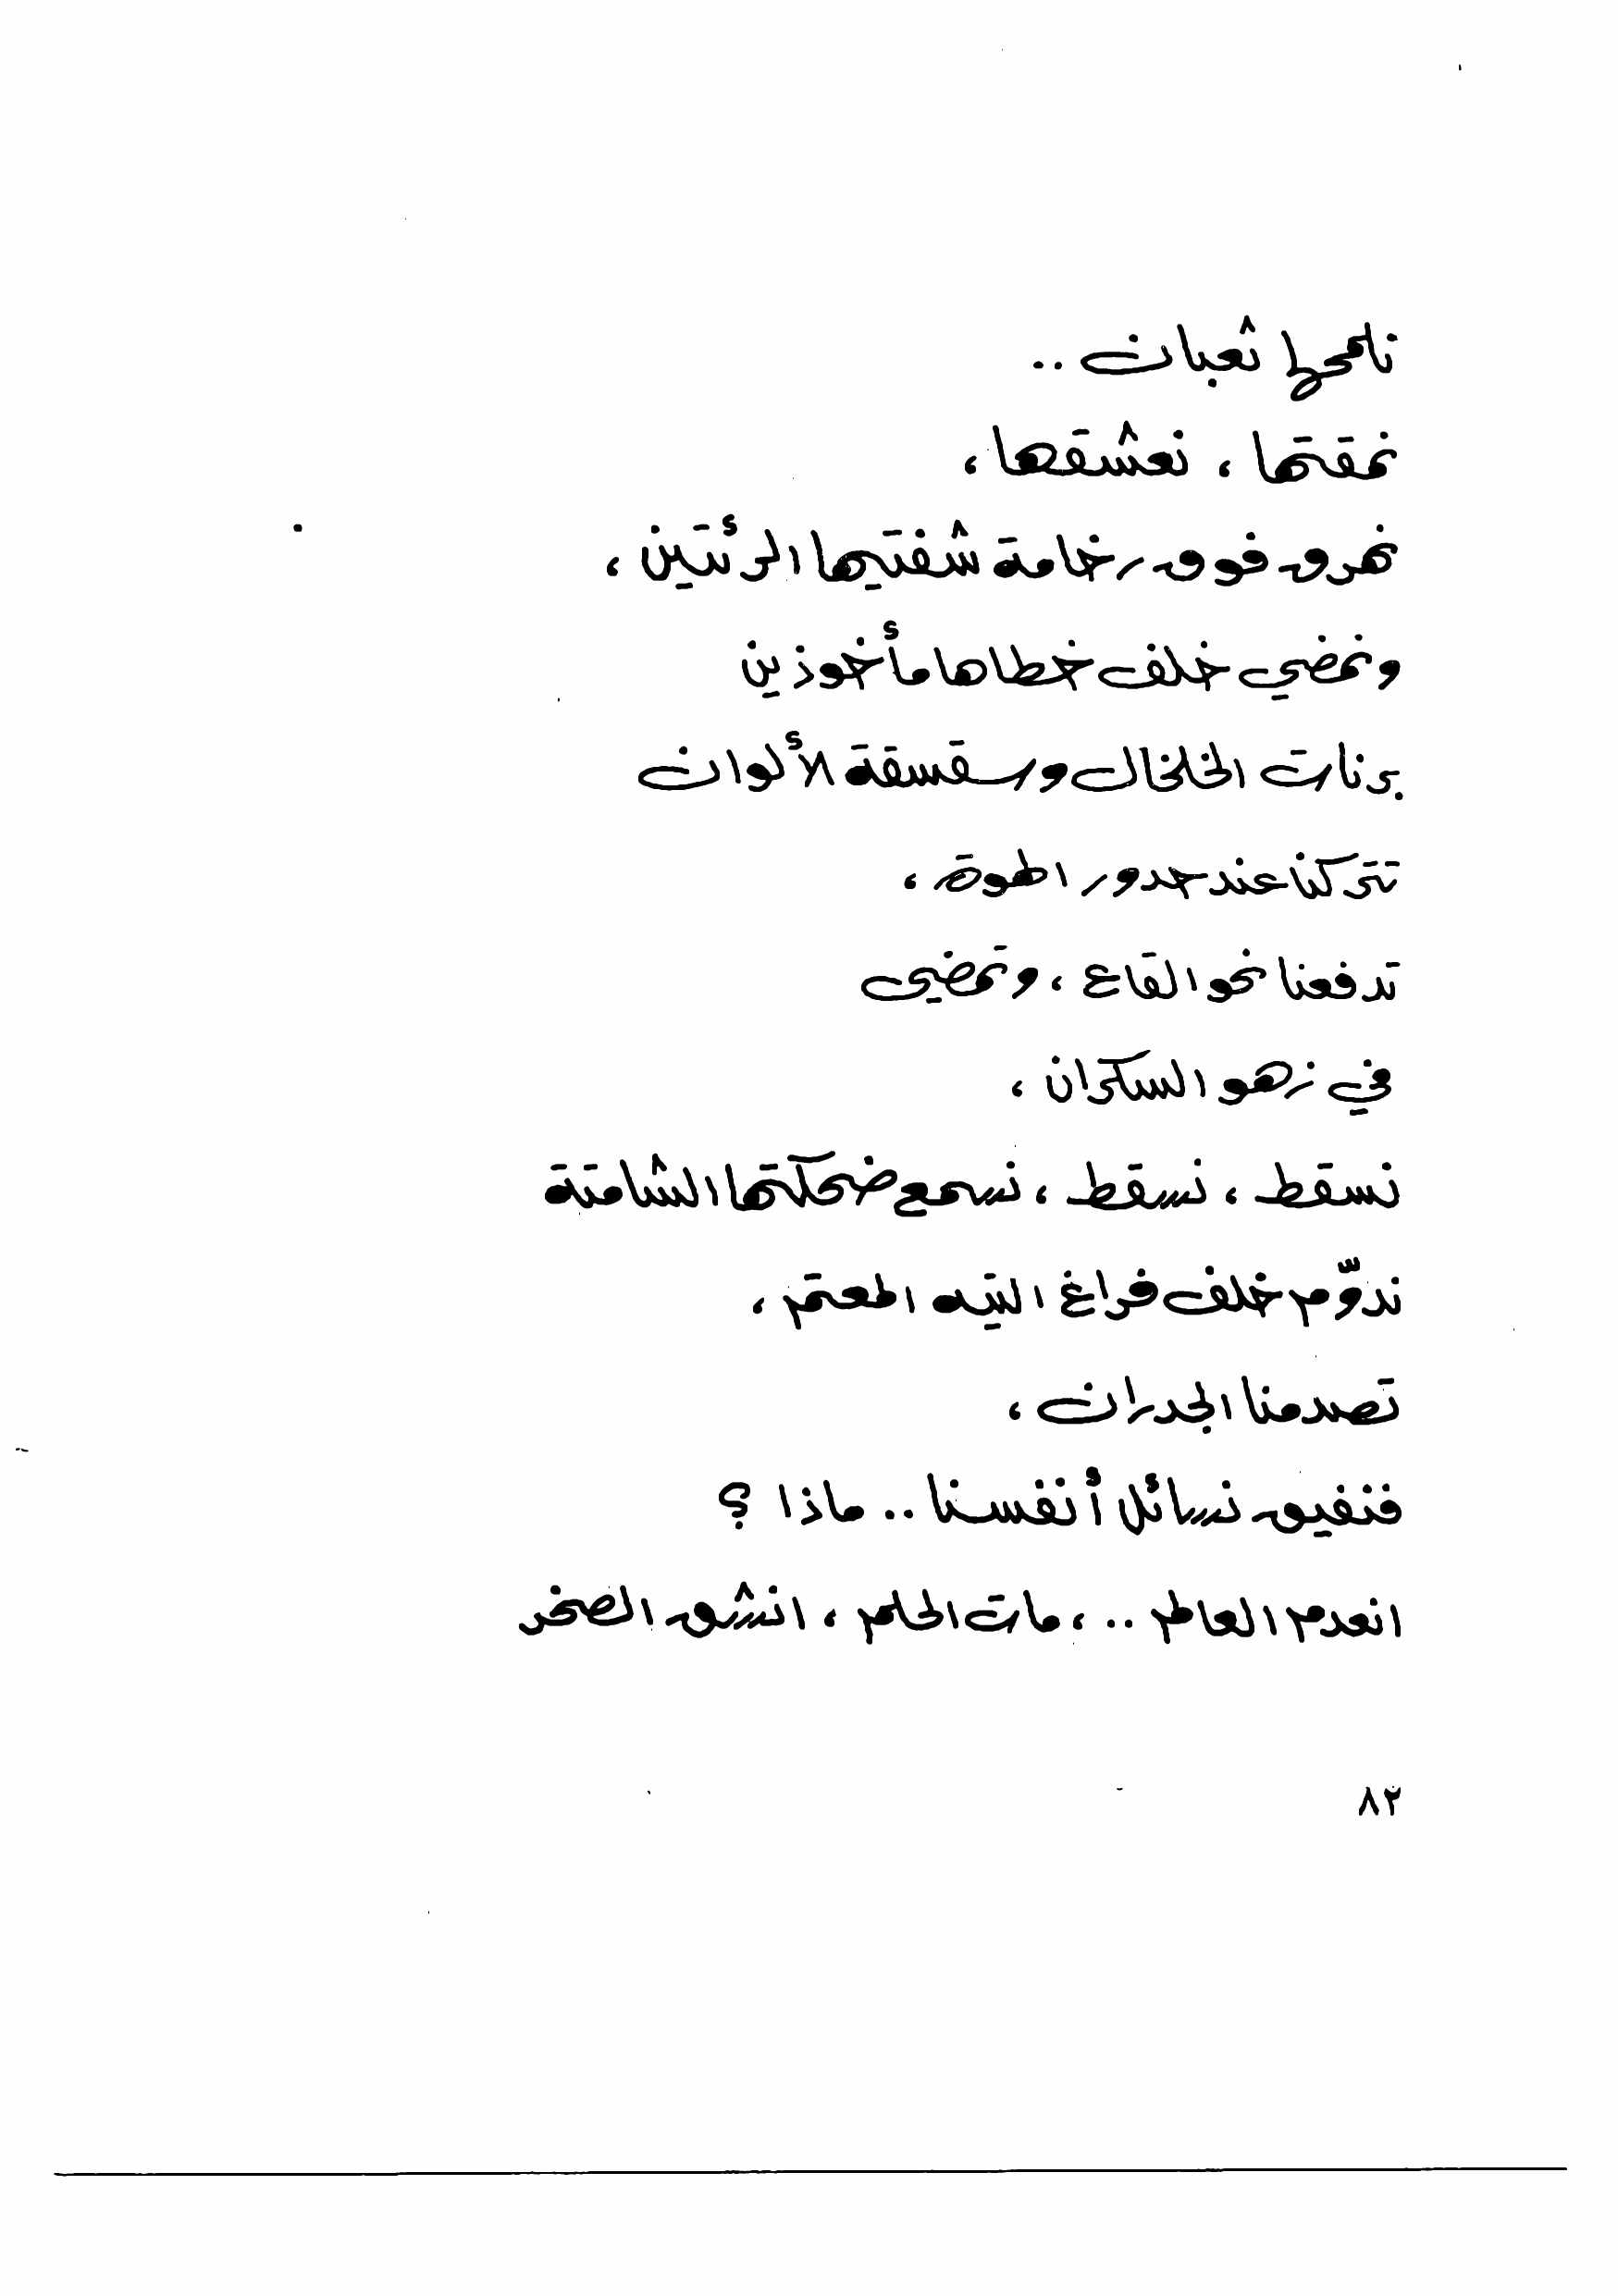 نلمحها ثعبان ..
نمقتها ، نعشقها ،
نهرق فوق رخامة شفتيها الرئتين ،
ونمضي خلف خطاها مأخوذين
برنات الخلخال وسقسقة الألوان
تتركنا عند حدور الهوة ،
تدفعنا نحو القاع ، وتمضي
في زهو السكران ،
نسقط ، نسقط ، نسمع ضحكتها الشامتة
ندوّم خلف فراغ التيه المعتم ،
تصدمنا الجدران ،
فنفيق نسائل أنفسنا .. ماذا ؟
انعدم العالم .. ، مات الحلم ، انشق الصخر
٨٢